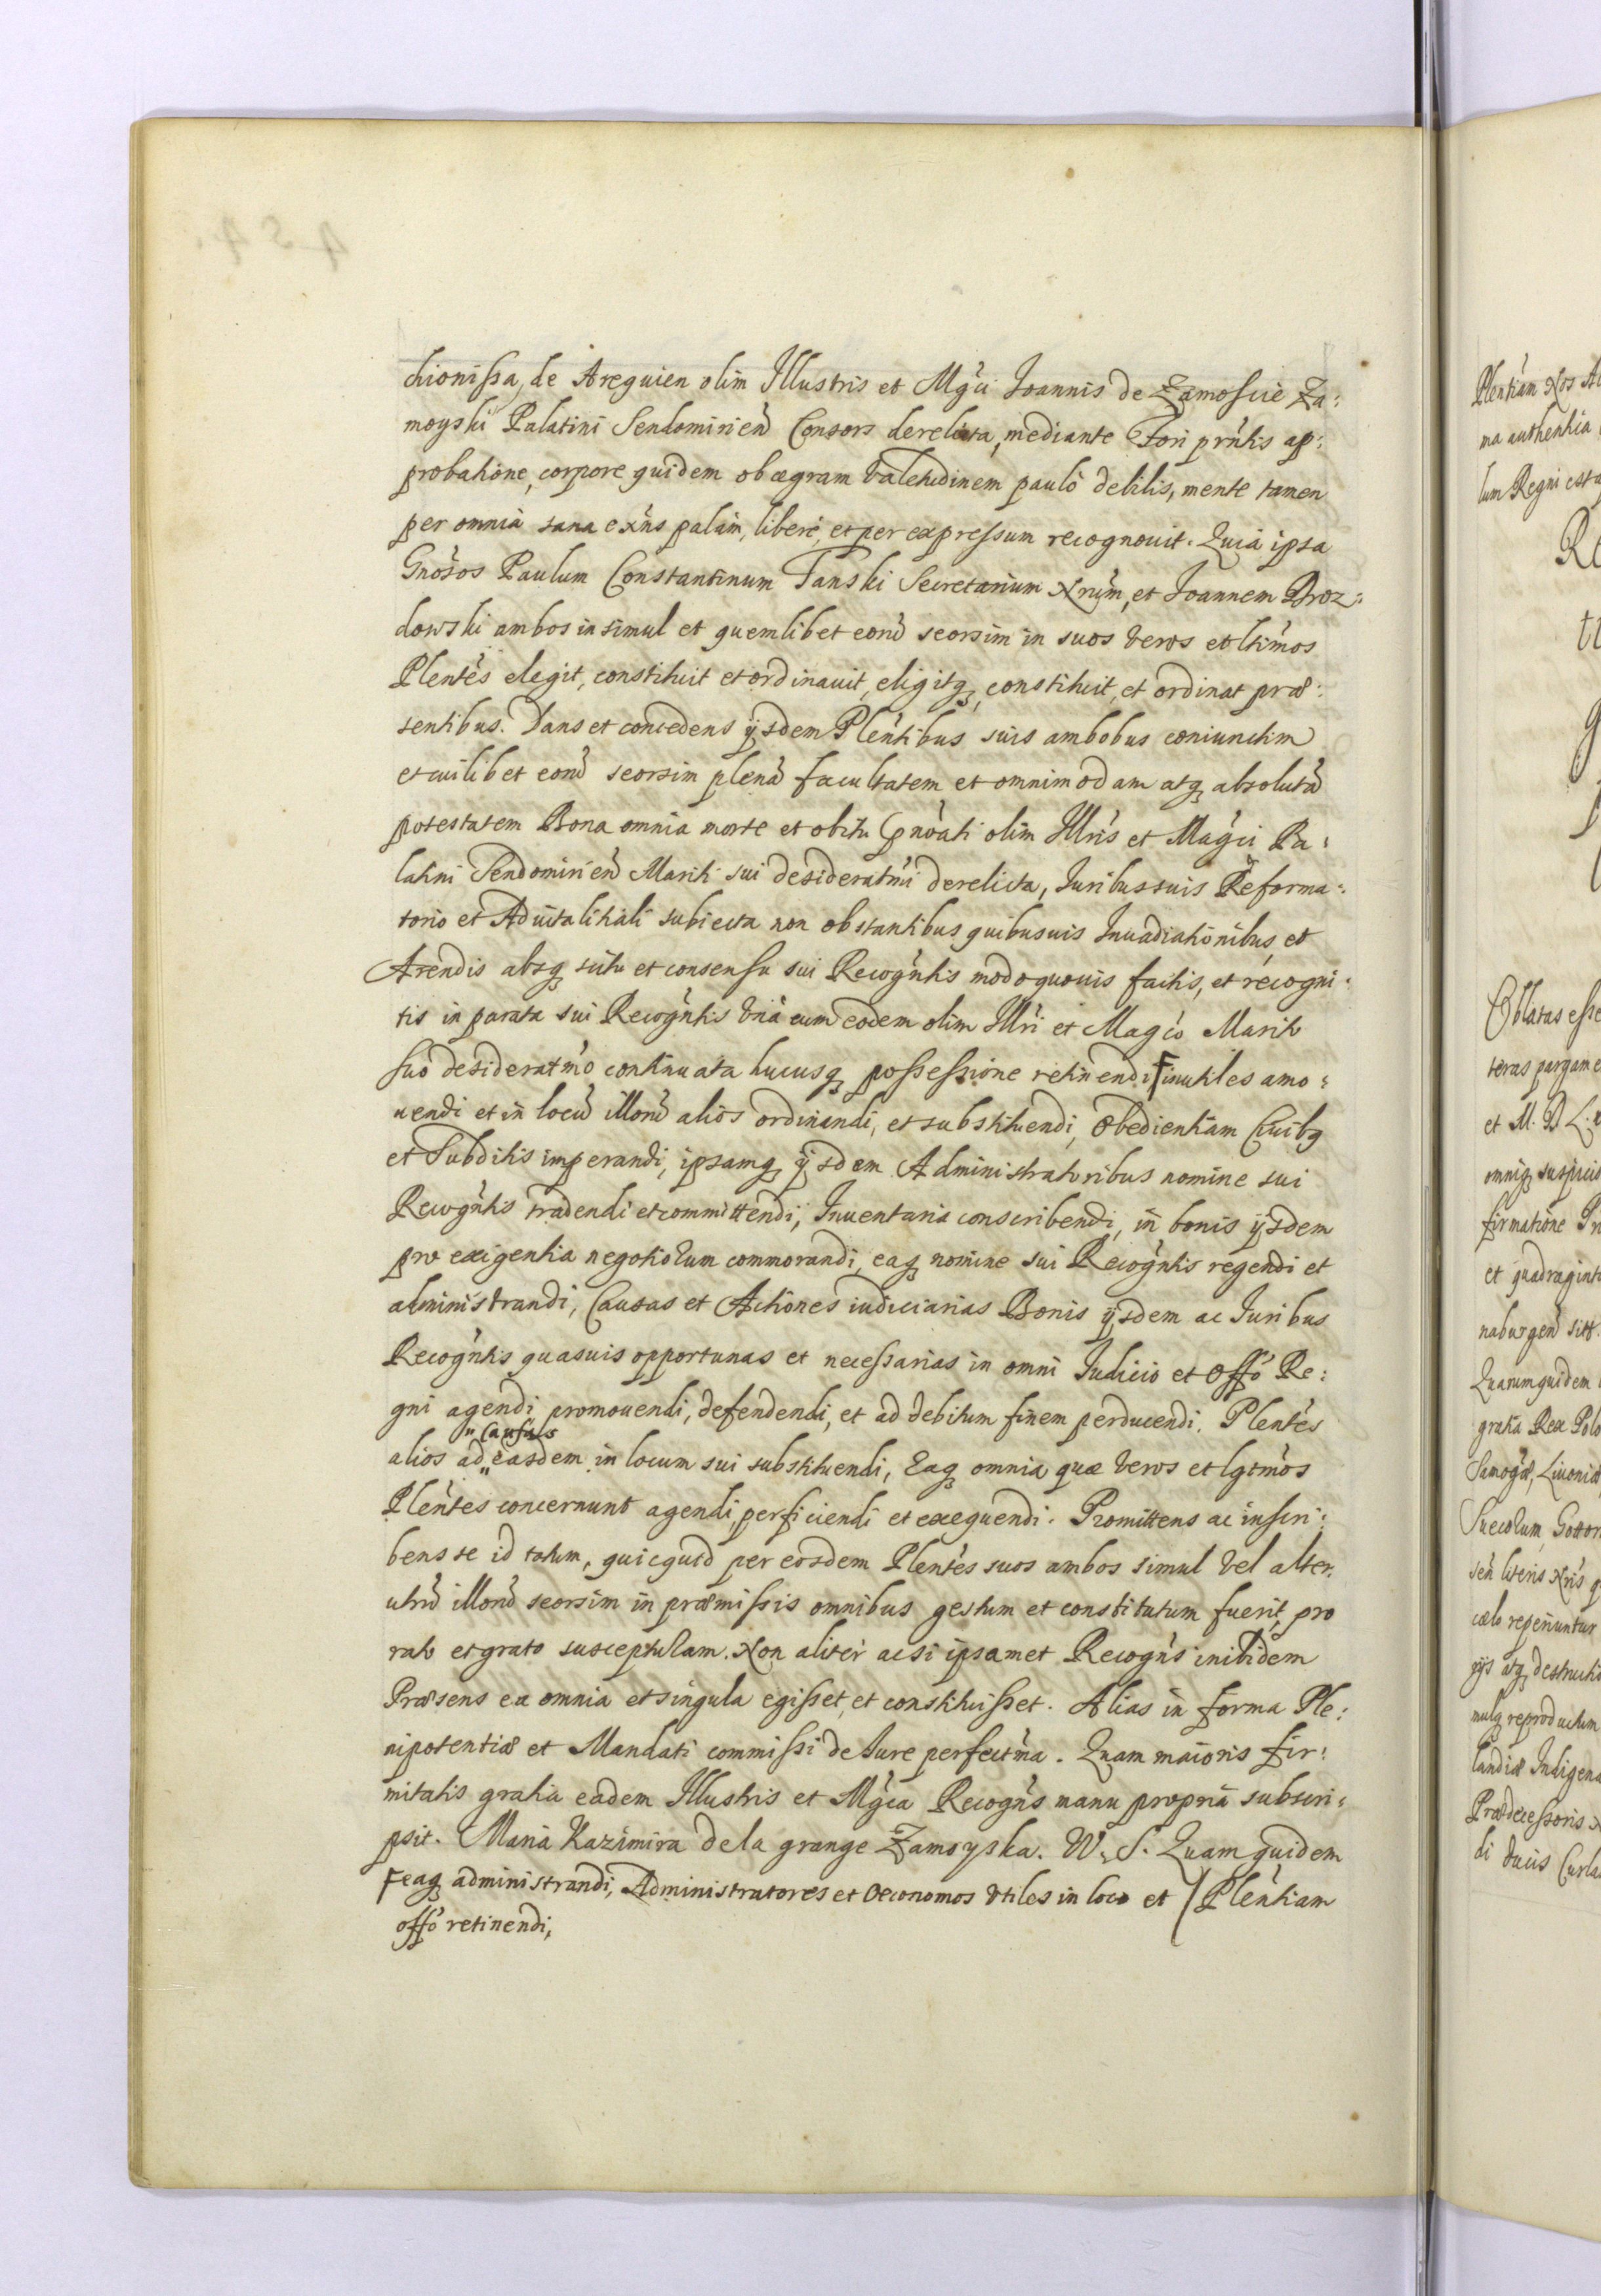 chionissa, de Arequien olim Illustris et Mgci Joannis de Zamoscie Za:
moyski Palatini Sendomirien Consors derelicta, mediante Fori prntis ap:
probatione, corpore quidem ob ægram valetudinem paulò debilis, mente tamen
per omnia sana exns palam, liberè, et per expressum recognouit. Quia ipsa
Gnosos Paulum Constantinum Tanski Secretarium Nrum, et Joannem Broz:
dowski ambos insimul et quemlibet eoru seorsim in suos veros et ltimos
Plentes elegit, constituit et ordinauit, eligitq, constituit, et ordinat præ:
sentibus. Dans et concedens ijsdem Plentibus suis ambobus coniunctim
et cuilibet eoru seorsim plena facultatem et omnimodam atq absoluta
potestatem Bona omnia morte et obitu pnoati olim Illris et Magci Pa:
latini Sendomirien Mariti sui desideratmi derelicta, Juribus suis Reforma:
torio et Aduitalitiali subiecta non obstantibus quibusuis Inuadiationibus et
Arendis absq scitu et consensu sui Recogntis modo quouis factis, et recogni:
tis in parata sui Recogntis vna cum eodem olim Illri et Magco Marito
suo desideratmo continuata hucusq possessione retinendi Ƒ inutiles amo:
uendi et in locu illoru alios ordinandi, et substituendi, Obedientiam Ciuibq
et Subditis imperandi, ipsamq ijsdem Administratoribus nomine sui
Recogntis tradendi et committendi, Inuentaria conscribendi, in bonis ijsdem
pro exigentia negotiorum commorandi, eaq nomine sui Recogntis regendi et
administrandi, Causas et Actiones iudiciarias Bonis ijsdem ac Juribus
Recogntis quasuis opportunas et necessarias in omni Judicio et Offo Re:
gni agendi promouendi, defendendi, et ad debitum finem perducendi. Plentes
" Causas
alios ad " easdem in locum sui substituendi, Eaq omnia quæ veros et lgtmos
Plentes concernunt agendi, perficiendi et exequendi. Promittens ac inscri:
bens se id totum, quicquid per eosdem Plentes suos ambos simul vel alter:
utru illoru seorsim in præmissis omnibus gestum et constitutum fuerit, pro
rato et grato suscepturam. Non aliter ac si ipsamet Recogns inibidem
Præsens ea omnia et singula egisset, et constituisset. Alias in forma Ple:
nipotentiæ et Mandati commissi de Jure perfectma. Quam maioris fir:
mitatis gratia eadem Illustris et Mgca Recogns manu propria subscri:
psit. Maria Kazimira de la grange Zamoyska. W. S. Quam quidem
Ƒ eaq administrandi, Administratores et Oeconomos vtiles in loco et / Plentiam
offo retinendi,
Plentiam Nos
na authentica
lum Regni est
Oblatas esse
teras pargame
et M. D L.
omniq suspicio
firmatione
et quadragint
naburgen sitt
Quarum quidem
gratia Rex Polo
Samogæ, Liuoniæ
Suecorum, Gottor
sen literis Nris
calo reperiuntur
gijs atq destructio
mulq reproductum
landiæ Indigena
Prædecessoris
di Ducis Curla